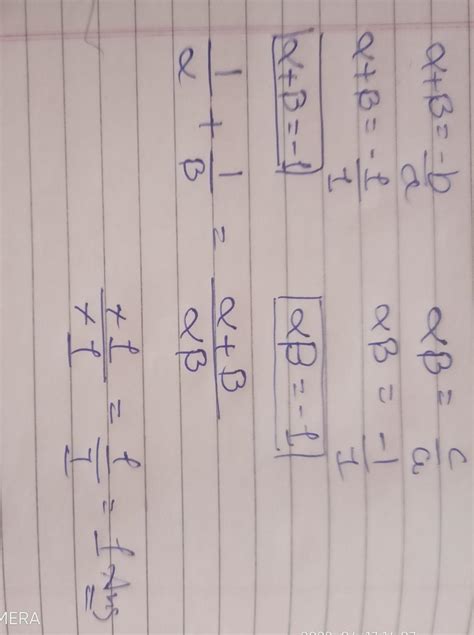 α+β = -b/a    αβ = c/a
α+β = -1/1    αβ = -1/1
α+β = -1    αβ = -1
1/α + 1/β = α+β/αβ
-1/-1 = 1/1 = 1 Ans
MERA